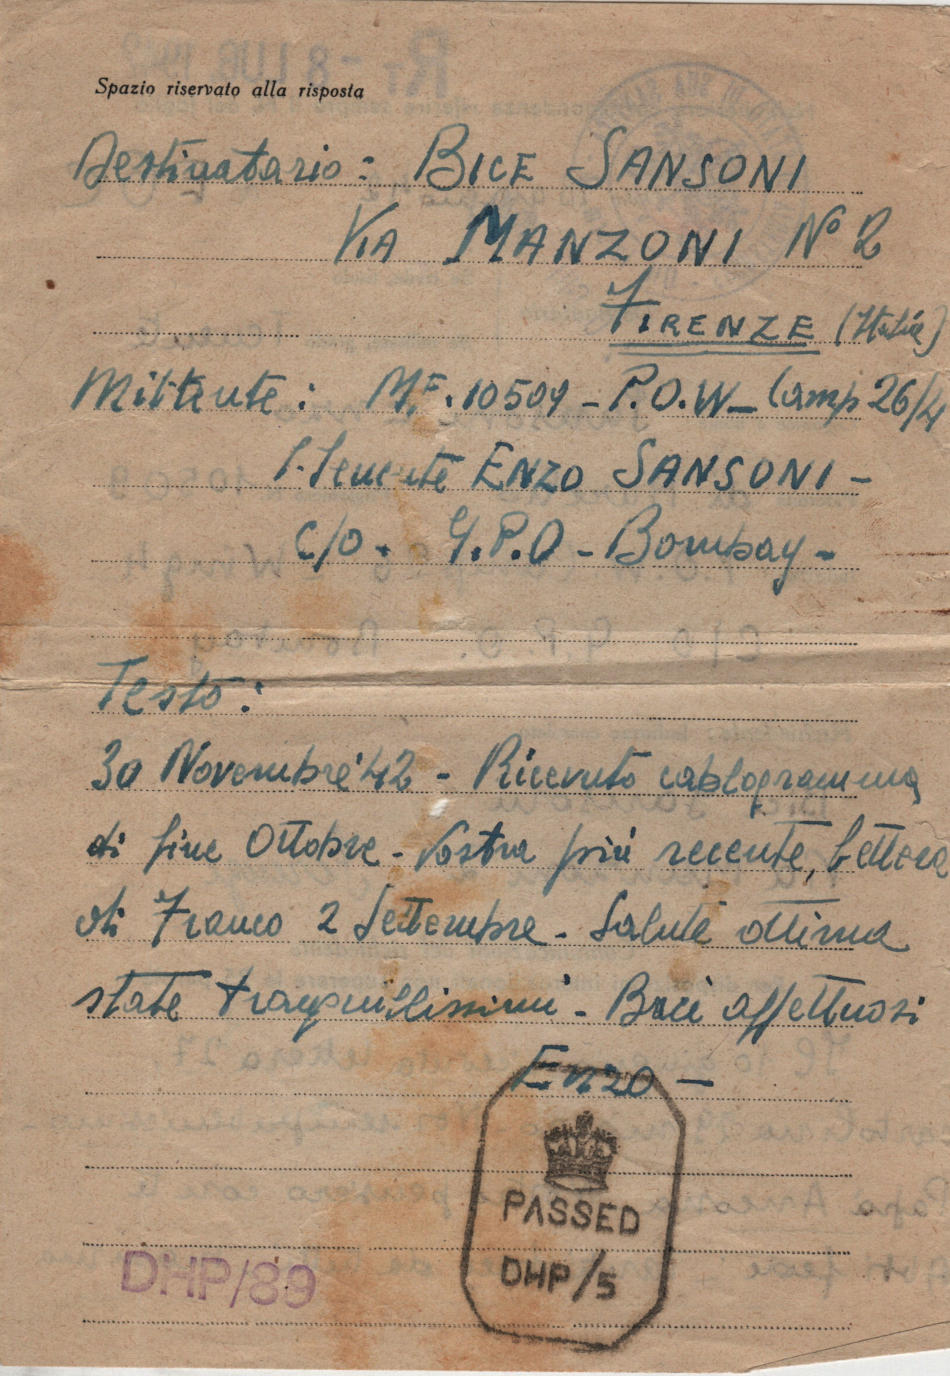 Spazio riservato alla risposta
Destinatario: BICE SANSONI
VIA MANZONI Nº 2
FIRENZE (Italia)
Mittente: ME. 10509 - P.O.W - Camp 26/4
S. Tenente ENZO SANSONI -
c/o. G.P.O - Bombay -
Testo:
30 Novembre '42 - Ricevuto cablogramma
di fine Ottobre - Vostra più recente, lettera
di Franco 2 Settembre - Salute ottima
state tranquillissimi - Baci affettuosi
Enzo -
PASSED
DHP/5
DHP/89